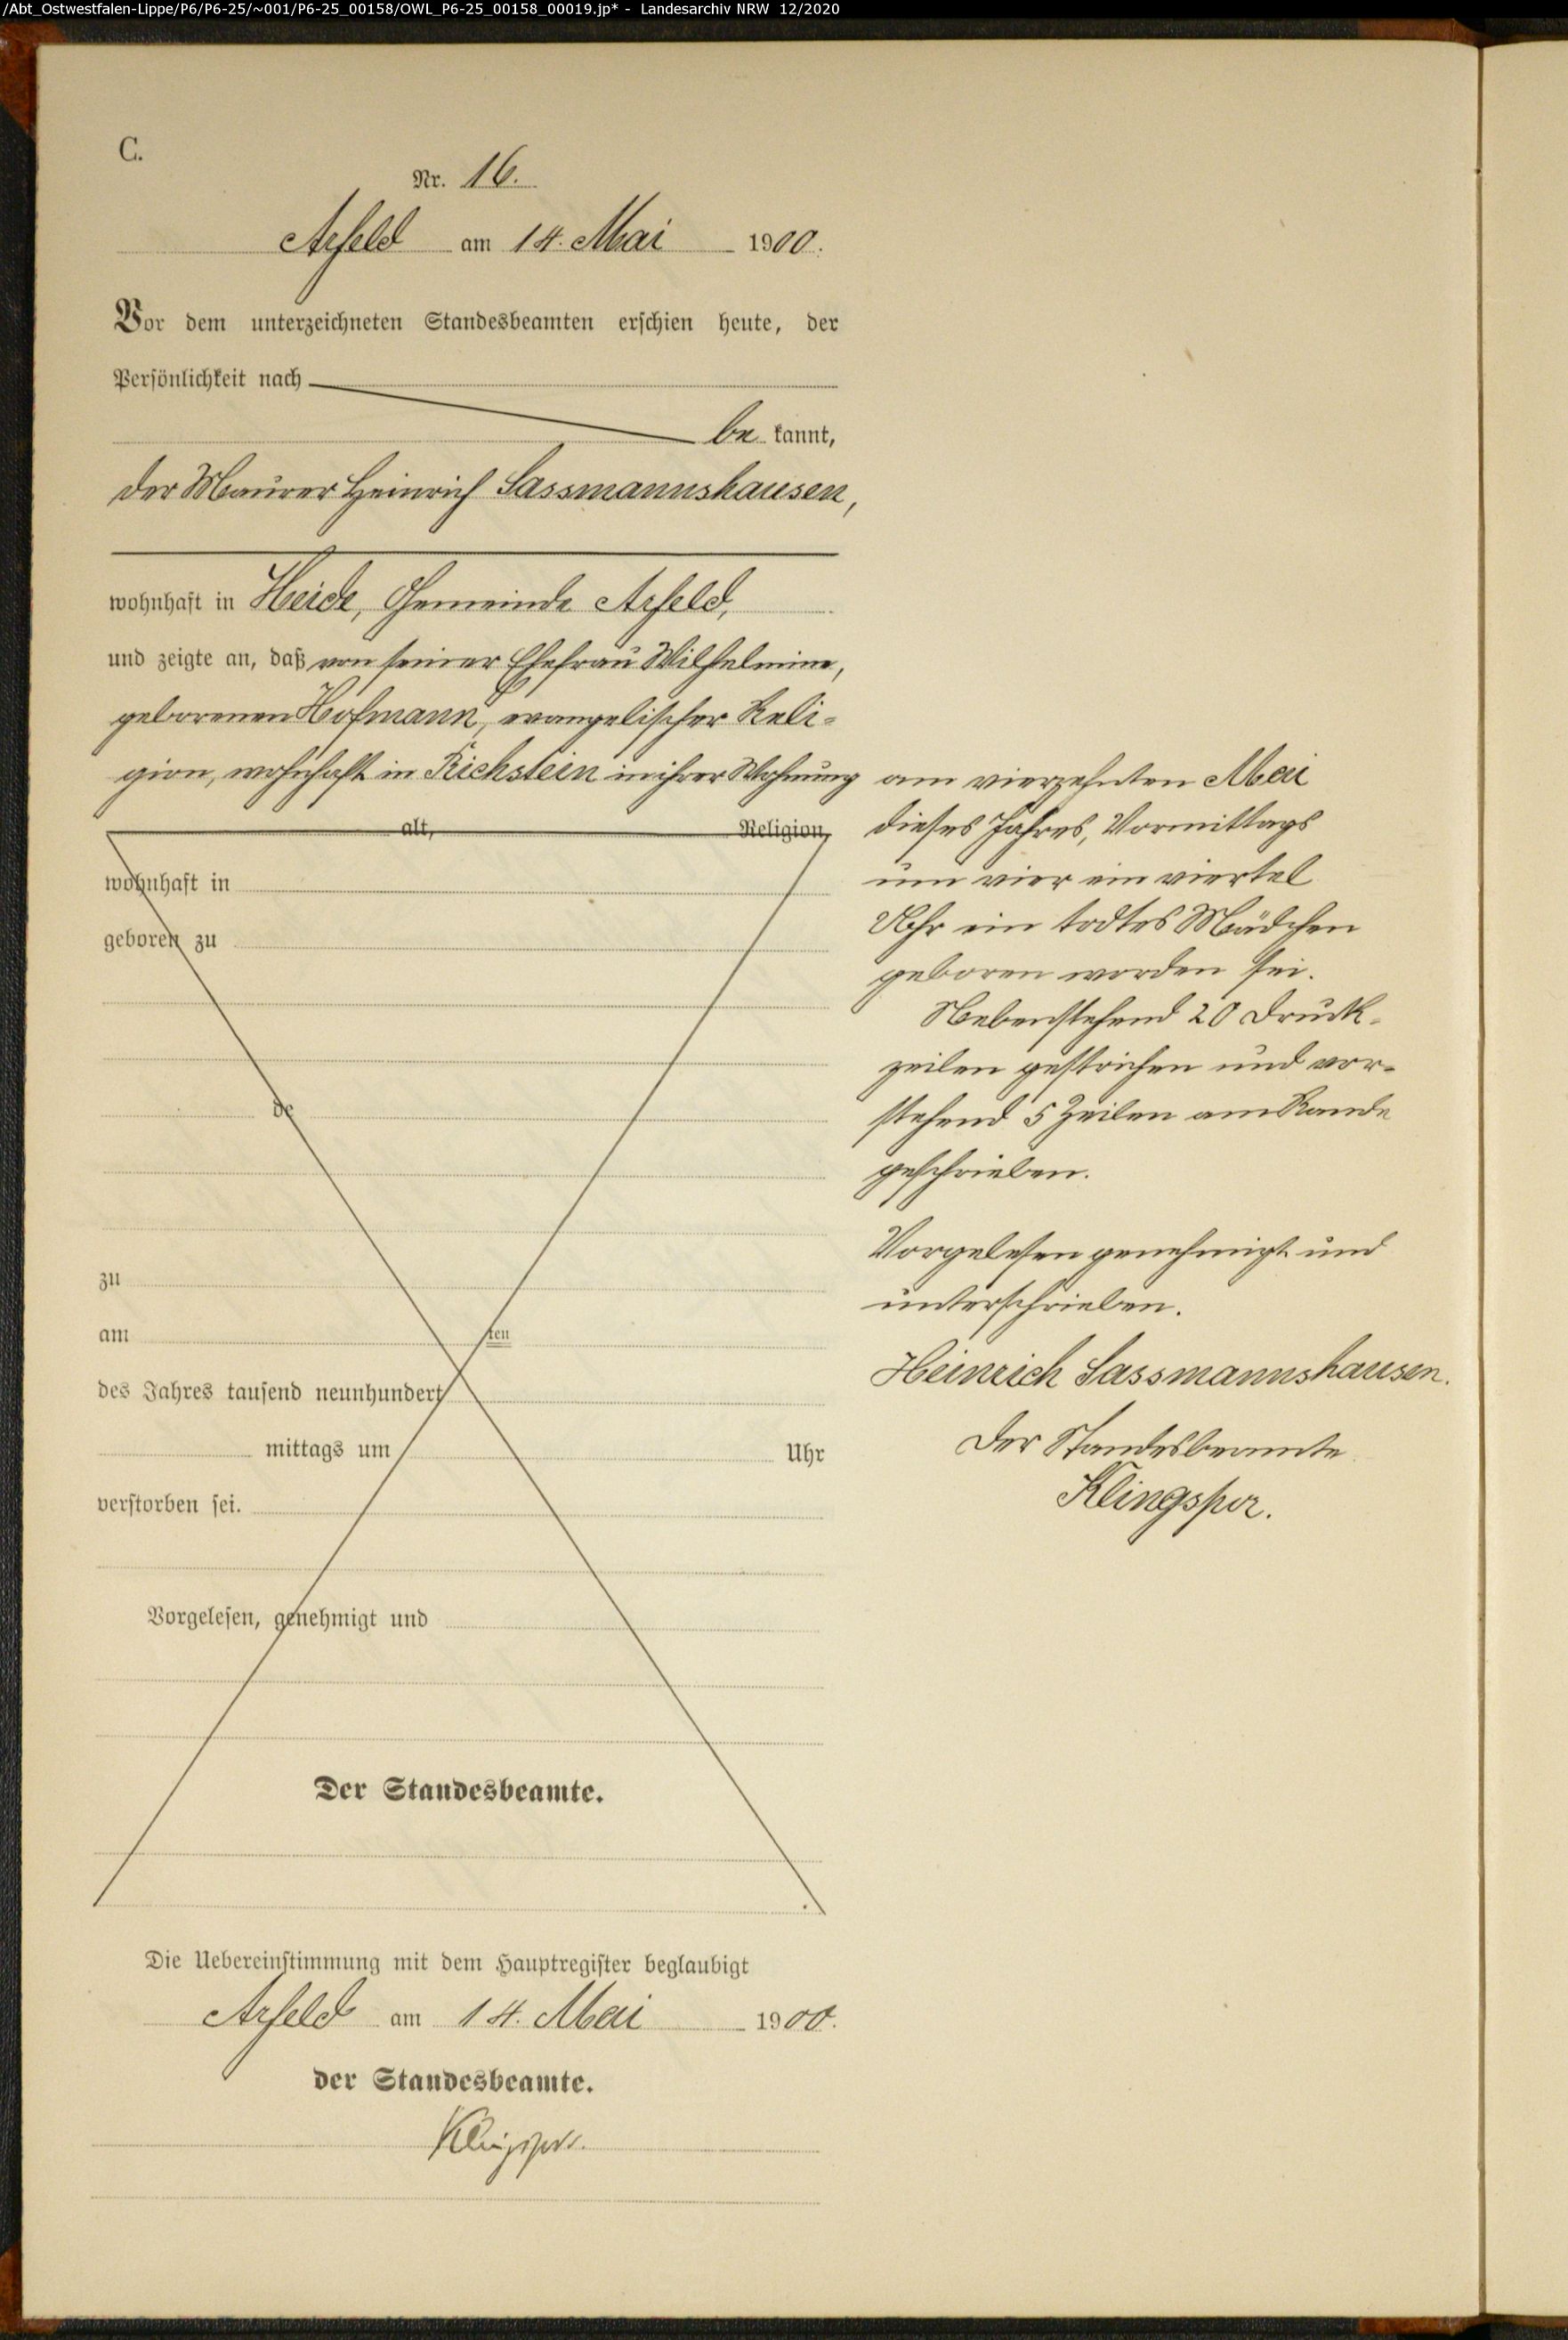 /Abt_Ostwestfalen-Lippe/P6/P6-25/~001/P6-25_00158/OWL_P6-25_00158_00019.jp* - Landesarchiv NRW 12/2020
C.
Nr. 16.
Arfeld am 14. Mai 1900.
Vor dem unterzeichneten Standesbeamten erschien heute, der
Persönlichkeit nach
be kannt,
der Maurer Heinrich Sassmannshausen,
wohnhaft in Heide, Gemeinde Arfeld,
und zeigte an, daß von seiner Ehefrau Wilhelmine,
geborenen Hofmann, evangelischer Reli-
gion, wohnhaft in Richstein in ihrer Wohnung
alt, Religion,
wohnhaft in
geboren zu
de
zu
am ten
des Jahres tausend neunhundert
mittags um Uhr
verstorben sei.
Vorgelesen, genehmigt und
Der Standesbeamte.
am vierzehnten Mai
dieses Jahres, Vormittags
um vier ein viertel
Uhr ein todtes Mädchen
geboren worden sei.
Nebenstehend 20 Druck-
zeilen gestrichen und vor-
stehend 5 Zeilen am Rande
geschrieben.
Vorgelesen genehmigt und
unterschrieben.
Heinrich Sassmannshausen.
Der Standesbeamte
Klingspor.
Die Uebereinstimmung mit dem Hauptregister beglaubigt
Arfeld am 14. Mai 1900.
der Standesbeamte.
Klingspor.